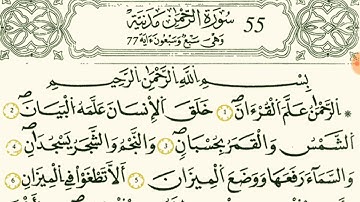 سورة الرحمن مدنية 55
وهي سبع وسبعون ءاية 77
بِسْمِ اللَّهِ الرَّحْمَٰنِ الرَّحِيمِ
* الرَّحْمَٰنُ عَلَّمَ الْقُرْءَانَ 1 خَلَقَ الْإِنسَانَ عَلَّمَهُ الْبَيَانَ 2
الشَّمْسُ وَالْقَمَرُ بِحُسْبَانٍ 3 وَالنَّجْمُ وَالشَّجَرُ يَسْجُدَانِ 4
وَالسَّمَاءَ رَفَعَهَا وَوَضَعَ الْمِيزَانَ 5 أَلَّا تَطْغَوْا فِي الْمِيزَانِ 6